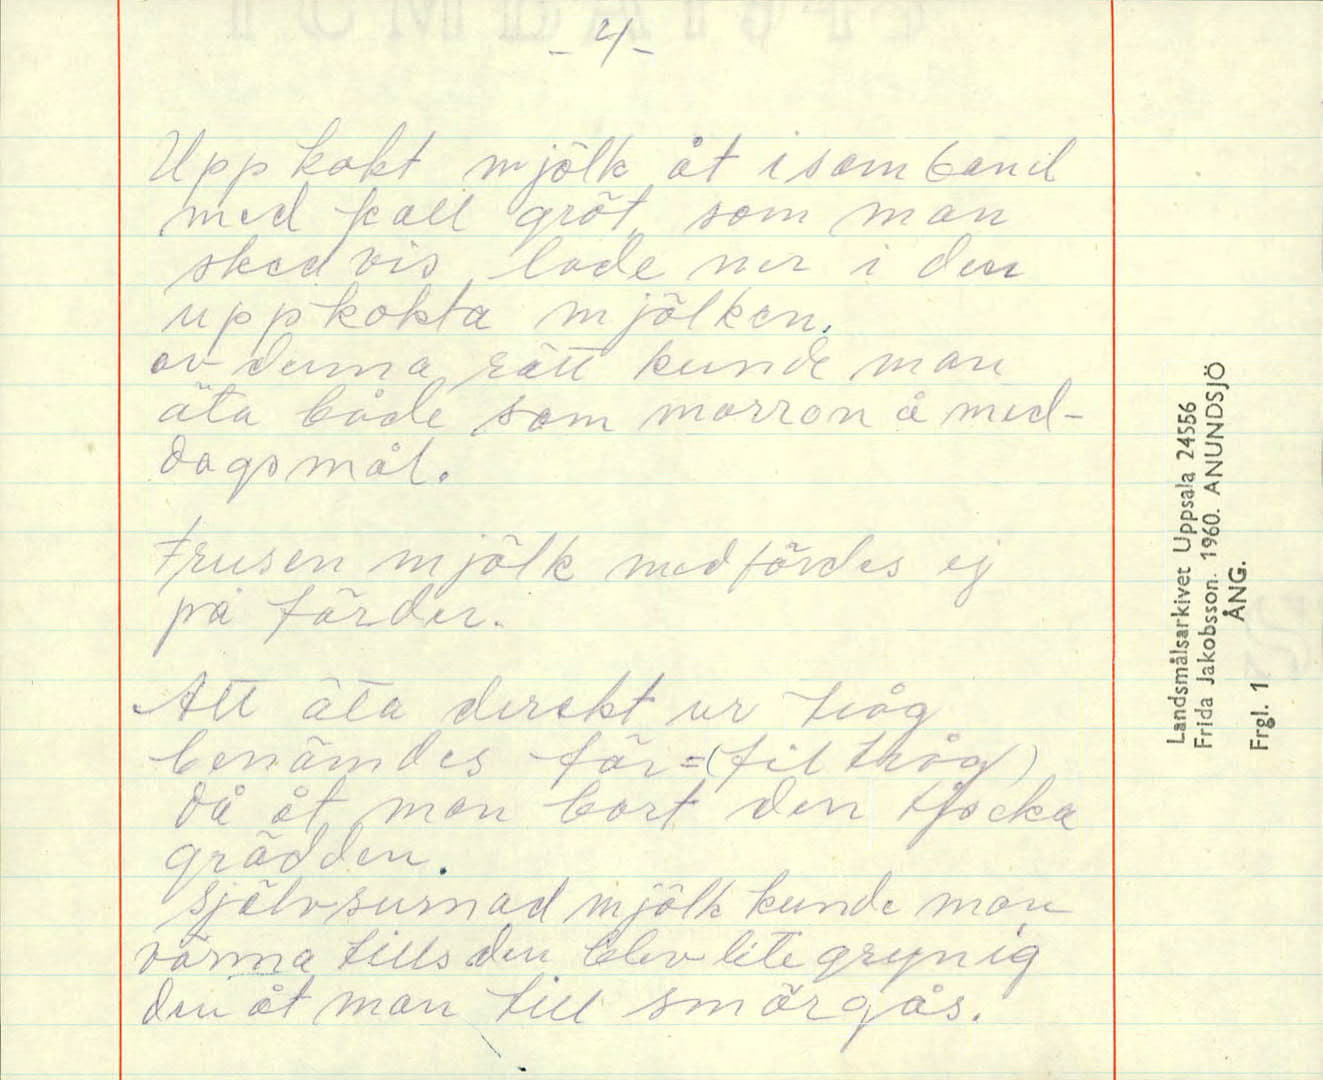 - 4 -
Uppkokt mjölk åt i samband
med kall gröt, som man
skedvis lade ner i den
uppkokta mjölken.
av denna rätt kunde man
äta både som morron å med-
dagsmål.
Frusen mjölk medfördes ej
på färder.
Att äta direkt ur tråg
benämdes för=(fil tråg)
då åt man bort den tjocka
grädden.
självsurnad mjölk kunde man
värma tills den blev lite grynig
den åt man till smörgås.
Landsmålsarkivet Uppsala 24556
Frida Jakobsson. 1960. ANUNDSJÖ
ÅNG.
Frgl. 1